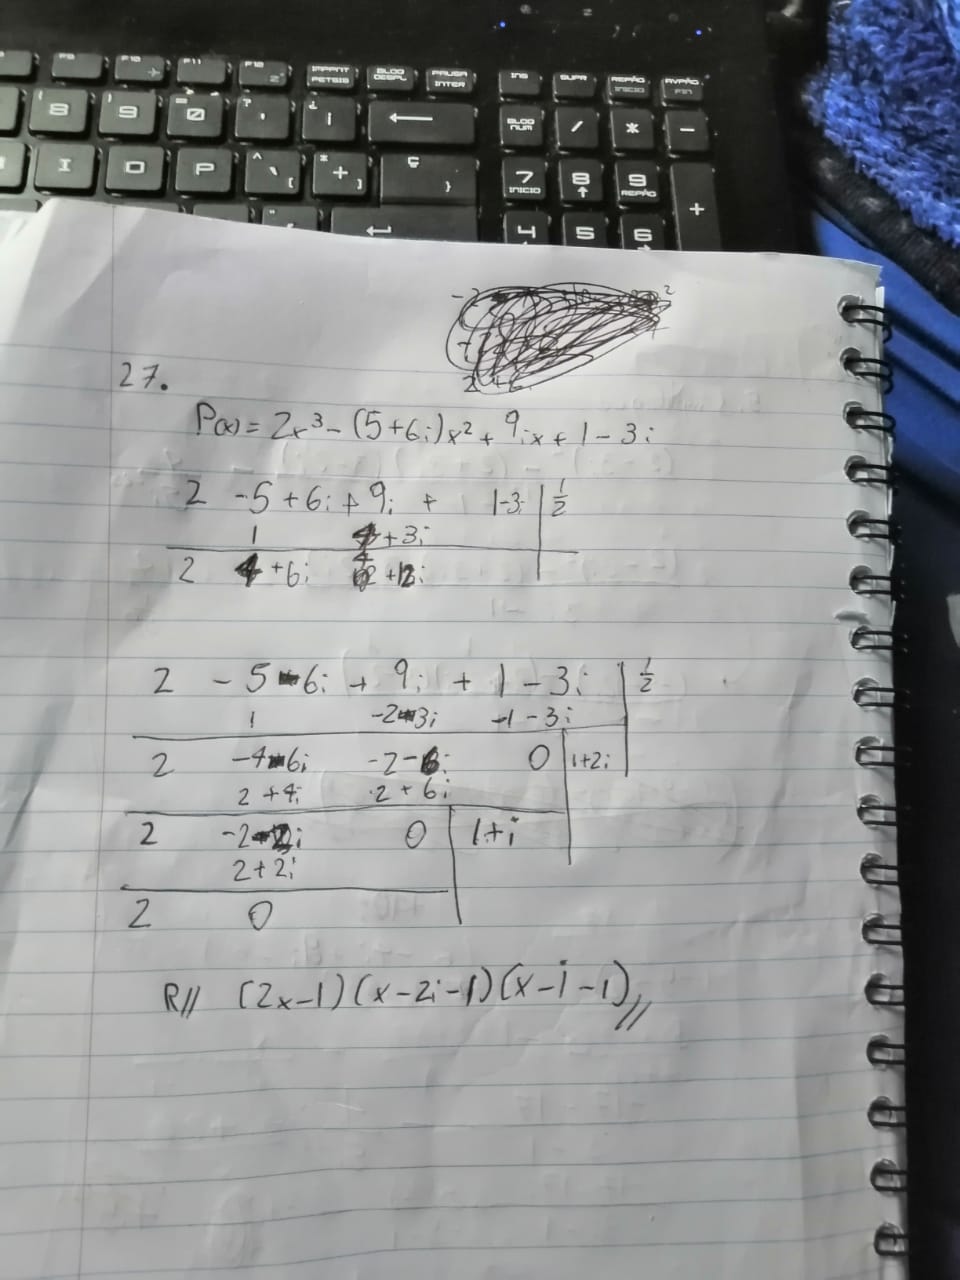 F9 F10 F11 F12 IMPANT PETSIS BLOQ DESPL PAUSA INTER INS SUPR REPÁG INICIO AVPÁG FIN
( 8 ) 9 = 0 ? ' ¿ ¡ BLOQ NUM / * -
I O P ^ ` [ * + ] Ç } 7 INICIO 8 9 REPÁG +
4 5 6
27.
P(x) = 2x³ - (5+6i)x² + 9ix + 1 - 3i
2 -5+6i + 9i + 1-3i 1/2
1 +3i
2 4+6i +12i
2 - 5 - 6i + 9i + 1 - 3i 1/2
1 -2-3i -1-3i
2 -4-6i -2-6i 0 1+2i
2+4i 2+6i
2 -2-2i 0 1+i
2+2i
2 0
R// (2x-1)(x-2i-1)(x-i-1)//